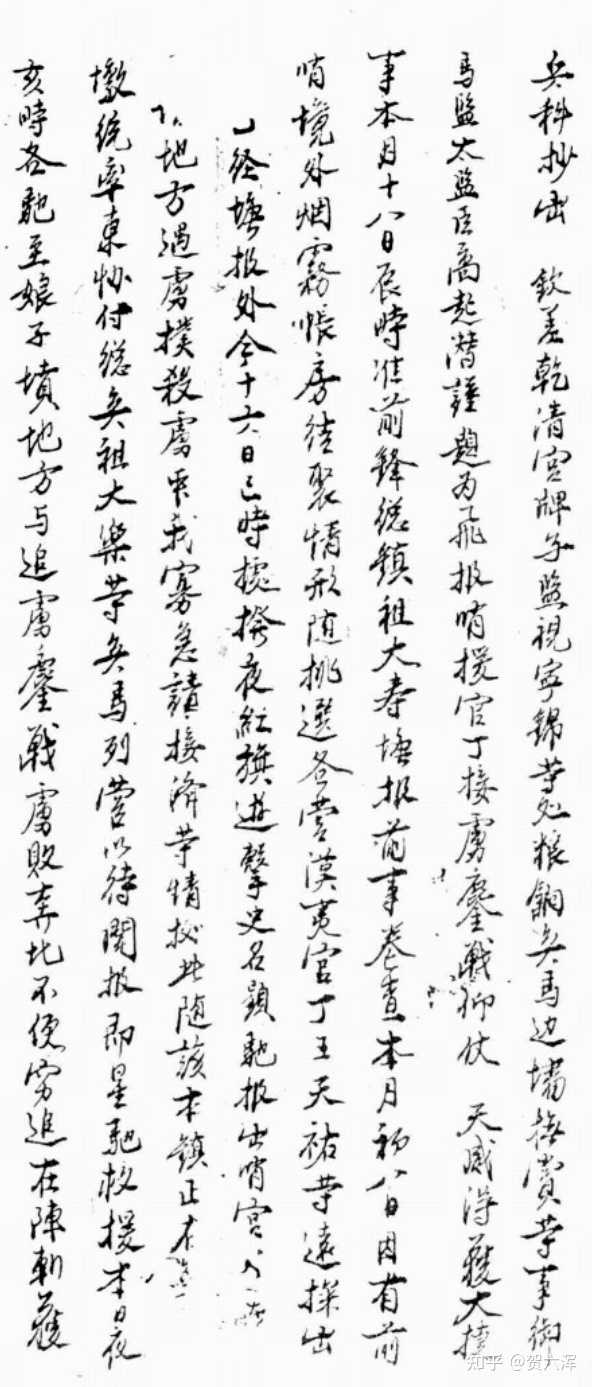 兵科抄出　欽差乾清宮牌子監視寧錦等处粮餉兵馬边墻撫賞等事御
馬監太監臣高起潜謹題为飛报哨援官丁接虜鏖戰仰仗　天威淂獲大捷
事本月十八日辰時准前鋒總鎮祖大寿塘报前事卷查本月初八日因有前
哨境外烟霧帳房徃聚情形随挑選各营漢夷官丁王天祐等遠探出
经塘报外今十六日巳時據撥夜紅旗逰擊史名顯馳报出哨官
地方遇虜撲殺虜衆我寡急請接济等情捄此随該本鎮正在
墩統率東协付總兵祖大樂等兵馬列营以待聞报即星馳救援本日夜
亥時各馳至娘子墳地方与追虜鏖戰虜敗奔北不便穷追在陣斬獲
知乎 @贺六浑